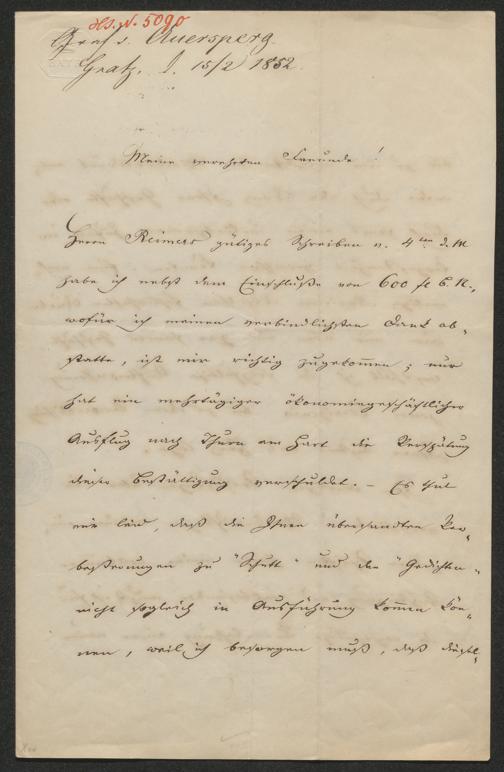 Hs. N. 5090
Graf v. Auersperg.
Gratz, d. 15/2 1852.
Meine verehrten Freunde!
Herrn Reimers gütiges Schreiben v. 4ten d. M.
habe ich nebst dem Einschluße von 600 fl C. M.,
wofür ich meinen verbindlichsten Dank ab-
statte, ist mir richtig zugekommen; nur
hat ein mehrtägiger ökonomiegeschäftlicher
Ausflug nach Thurn am Hart die Verspätung
dieser Bestättigung verschuldet. – Es thut
mir leid, daß die Ihnen übersandten Ver-
beßerungen zu "Schutt" und den "Gedichten"
nicht sogleich in Ausführung kommen kön-
nen, weil ich besorgen muß, daß diesel-